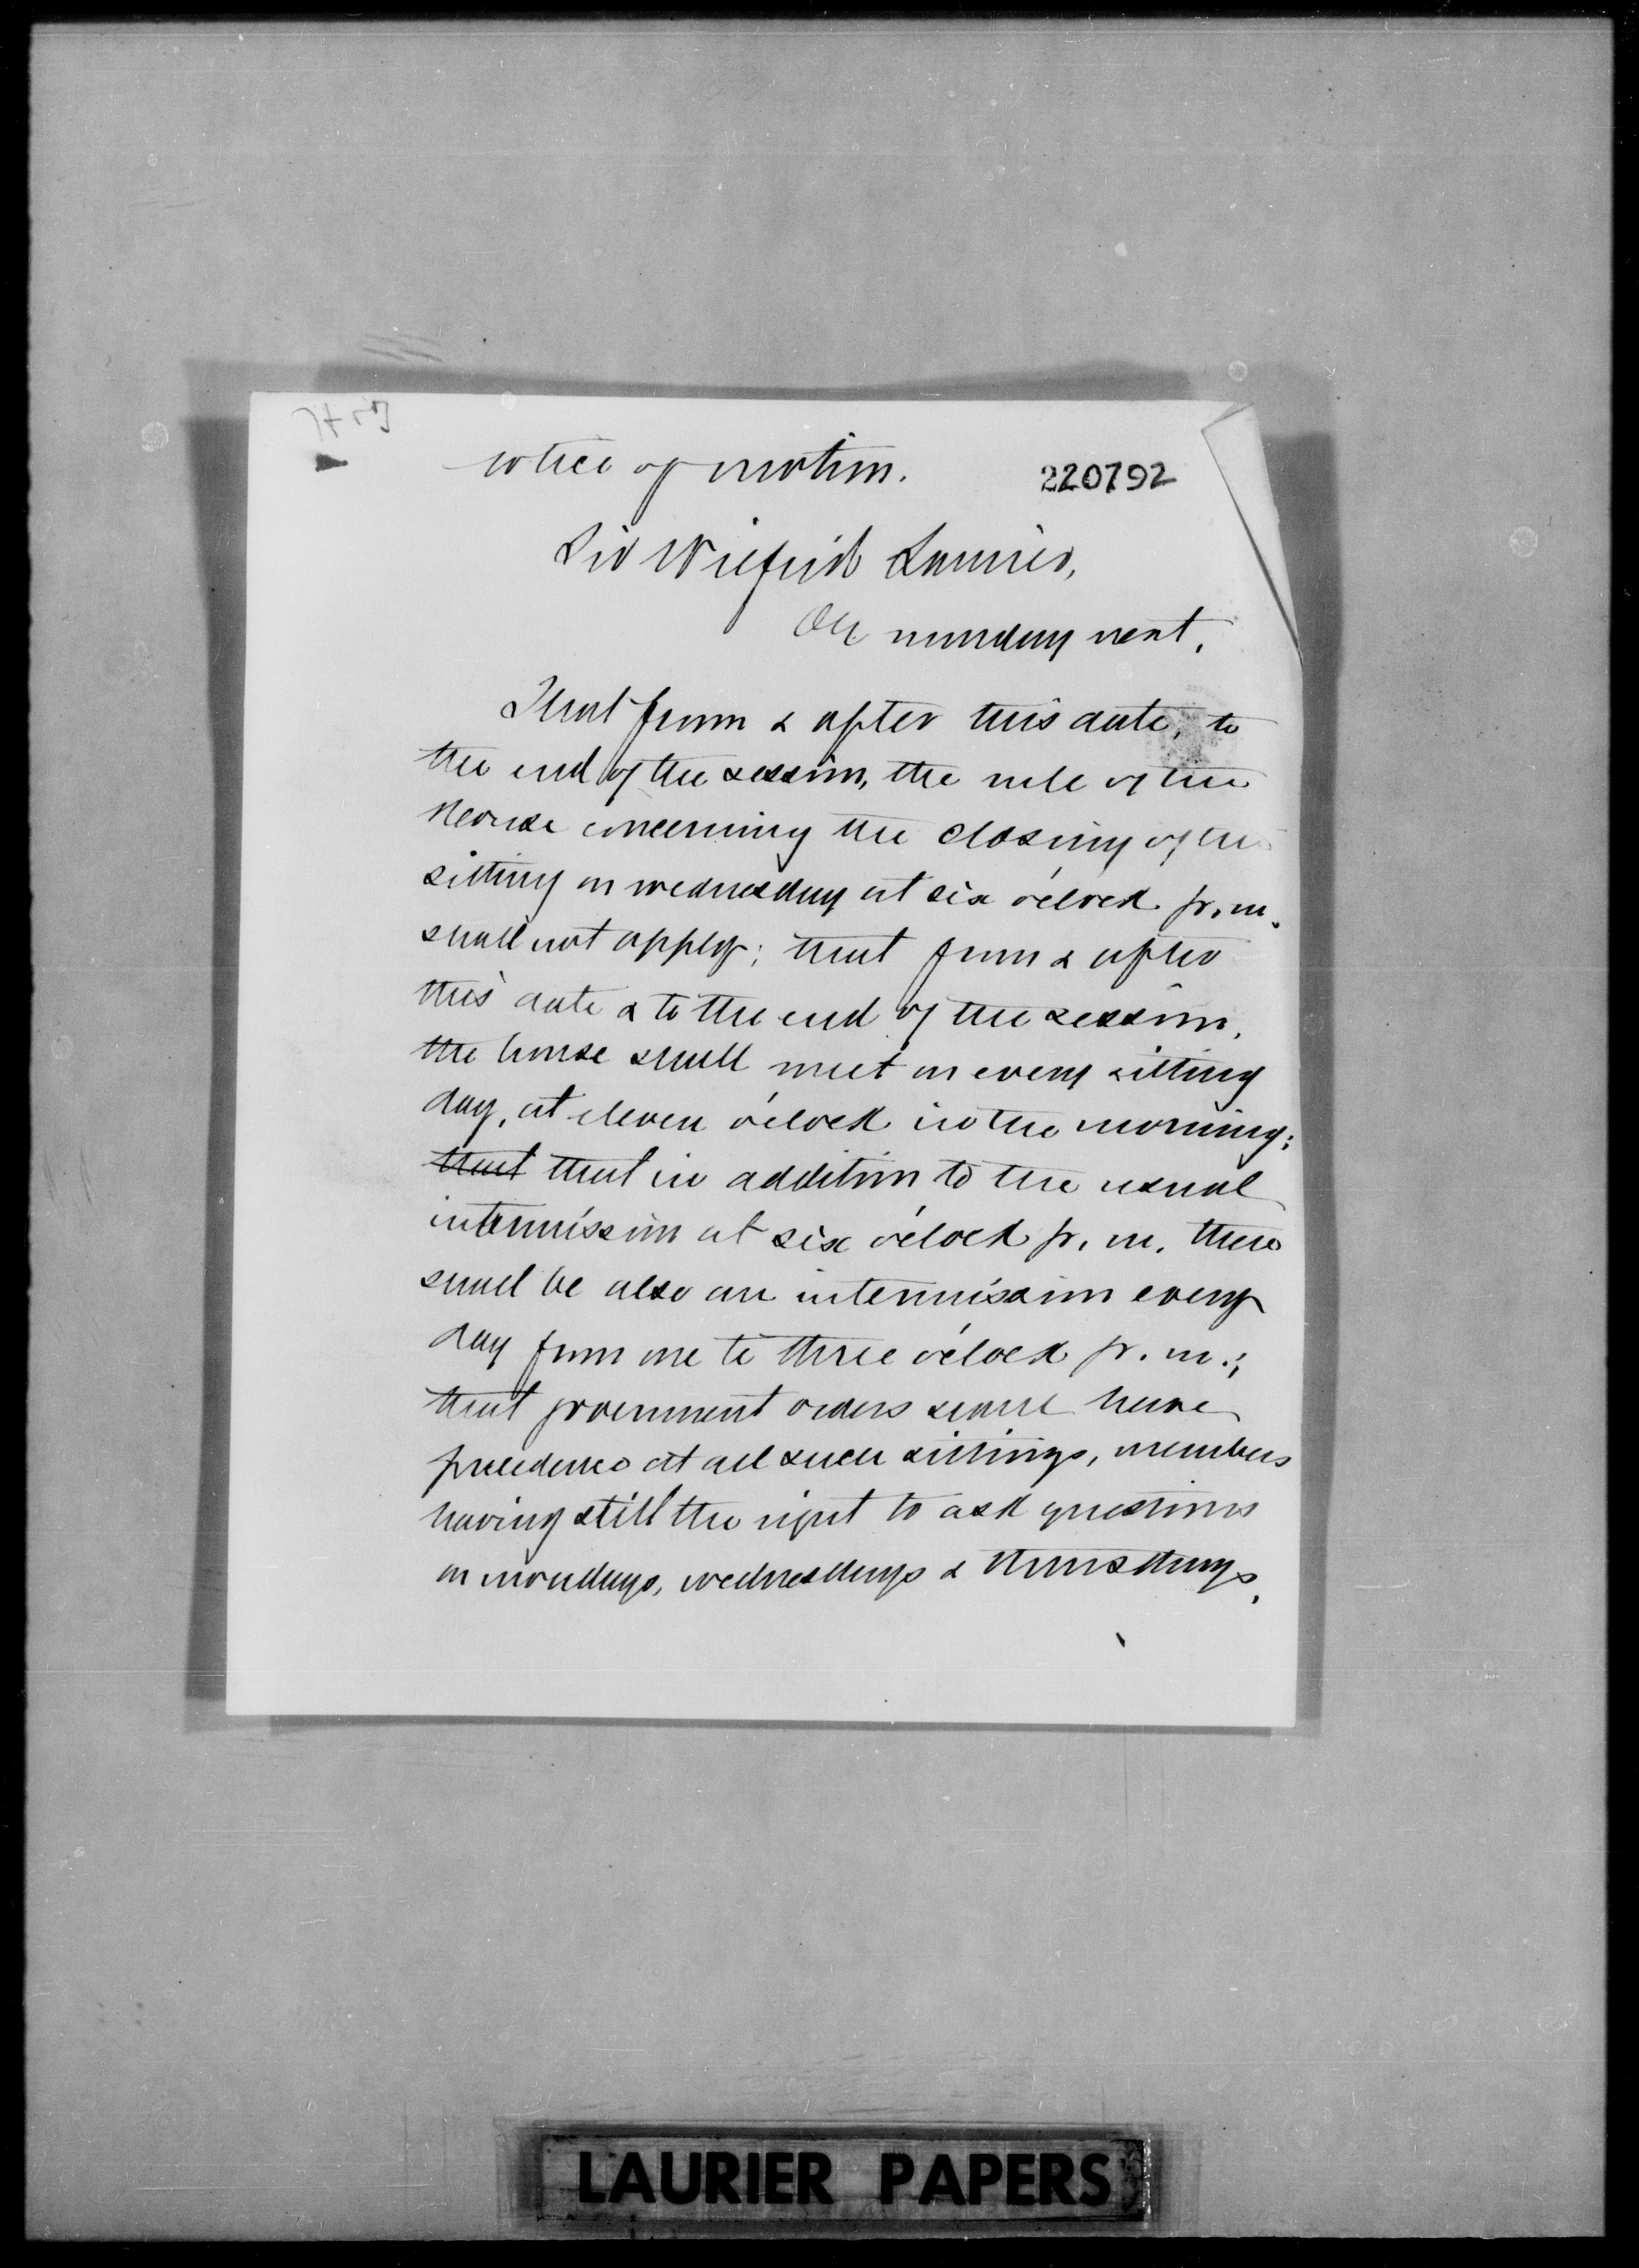 notice of motion.
220792
Sir Wilfrid Laurier,
On monday next.
That from & after this date, to
the end of the session, the rule of the
House concerning the closing of the
sitting on wednesday at six o'clock p. m.
shall not apply; that from & after
this date & to the end of the session,
the house shall meet on every sitting
day, at eleven o'clock in the morning;
that that in addition to the usual
intermission at six o'clock p. m. there
shall be also an intermission every
day from one to three o'clock p. m.;
that government orders shall have
precedence at all such sittings, members
having still the right to ask questions
on mondays, wednesdays & thursdays.
LAURIER PAPERS